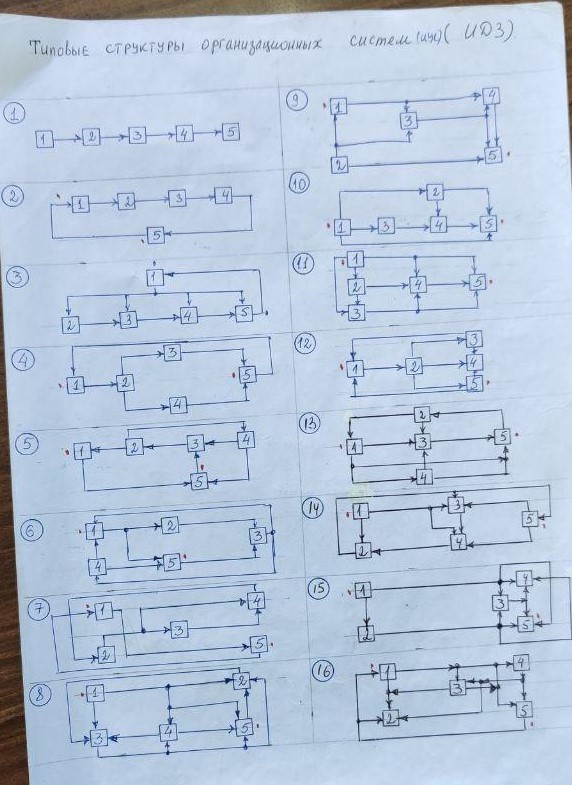 Типовые структуры организационных систем (ИДЗ)
1
1 2 3 4 5
2
1 2 3 4
5
3
1
2 3 4 5
4
3
1 2 5
4
5
1 2 3 4
5
6
1 2
3
4 5
7
1 4
3
2 5
8
1 2
3 4 5
9
1 4
3
2 5
10
2
1 3 4 5
11
1
2 4 5
3
12
3
1 2 4
5
13
2
1 3 5
4
14
1 3
5
2 4
15
1 4
3
2 5
16
1 4
3
2 5